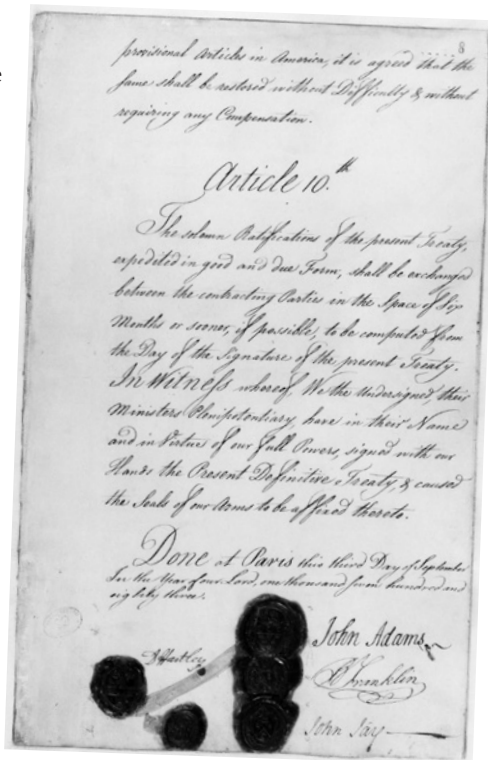 e
8
provisional Articles in America, it is agreed that the
same shall be restored without Difficulty & without
requiring any Compensation.
Article 10.th
The solemn Ratifications of the present Treaty,
expedited in good and due Form, shall be exchanged
between the contracting Parties in the Space of Six
Months or sooner, if possible, to be computed from
the Day of the Signature of the present Treaty.
In Witness whereof, We the Undersigned their
Ministers Plenipotentiary, have in their Name
and in Virtue of our full Powers, signed with our
Hands the Present Definitive Treaty, & caused
the Seals of our Arms to be affixed thereto.
Done at Paris this third Day of September
In the Year of our Lord, one thousand seven hundred and
eighty three.
D Hartley
John Adams
B Franklin
John Jay